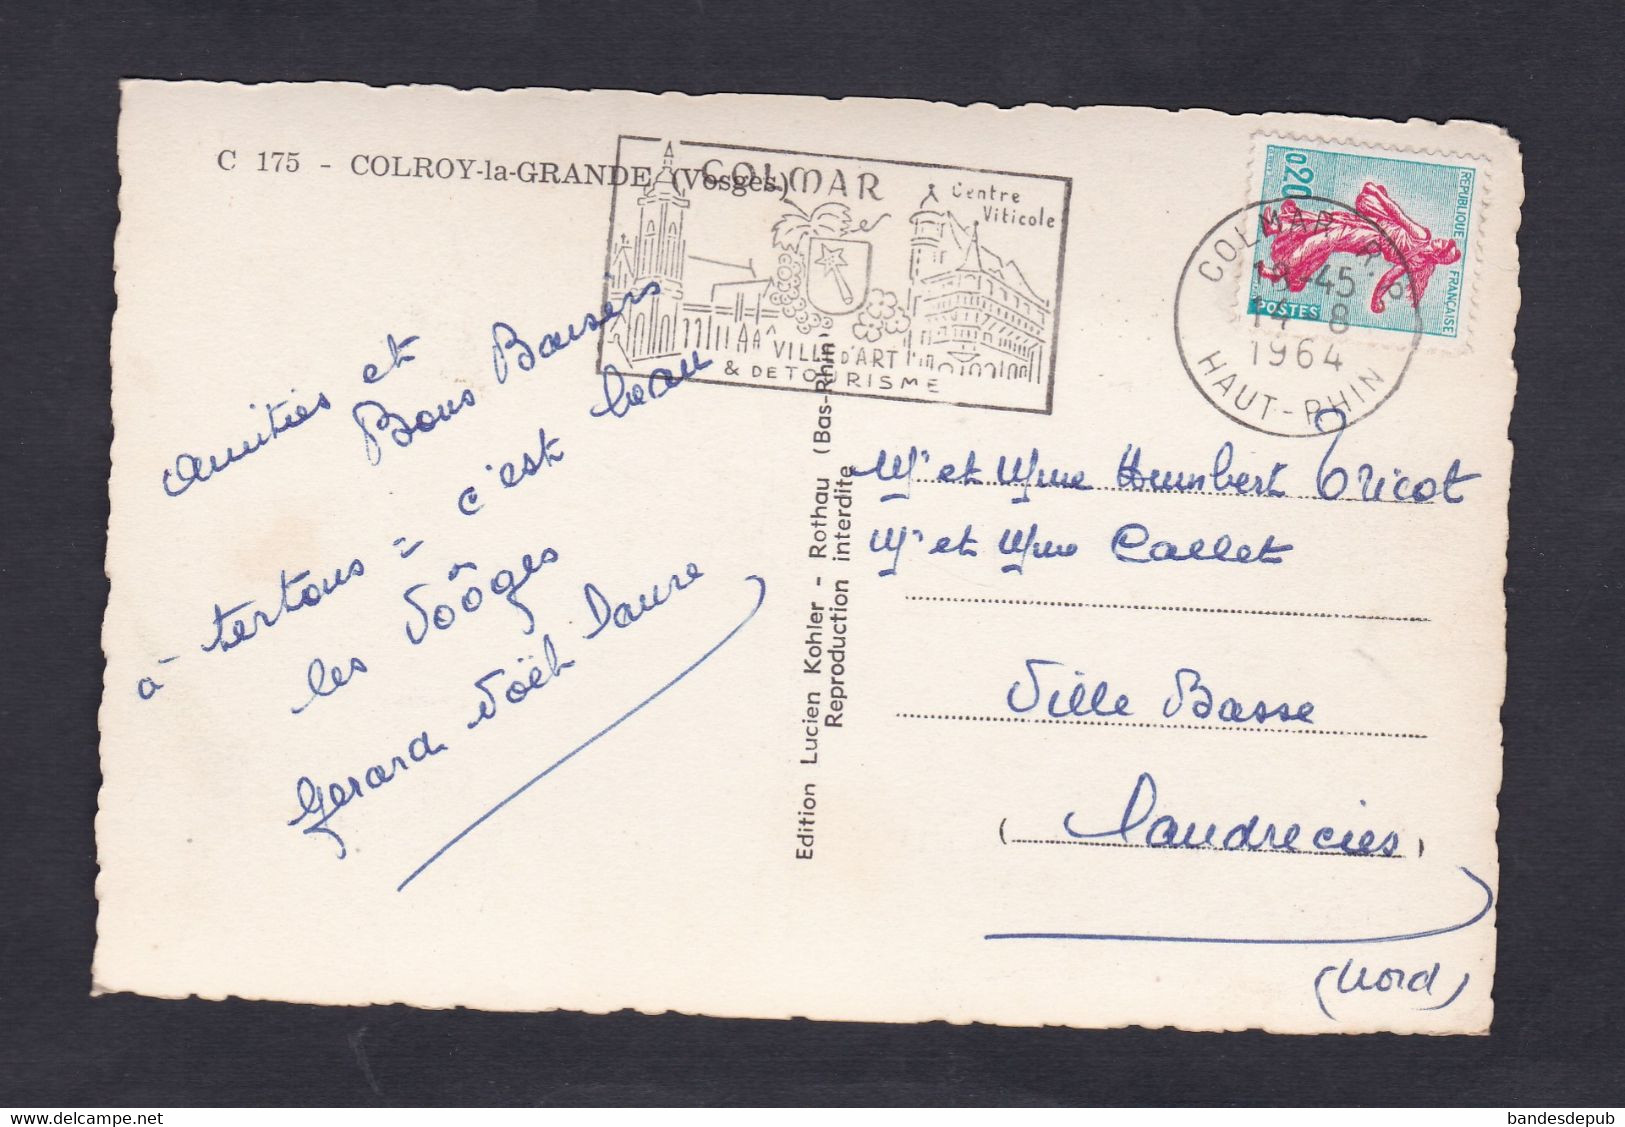 C 175 - COLROY-la-GRANDE (Vosges)
COLMAR
Centre
Viticole
VILLE D'ART
& DE TOURISME
REPUBLIQUE FRANÇAISE
0,20
POSTES
COLMAR R.P.
18 45
14 - 8
1964
HAUT-RHIN
amitiés et
Bons Baisers
à tertous = c'est beau
les Voôges
Gerard Noël Daure
Edition Lucien Kohler - Rothau (Bas-Rhin)
Reproduction interdite
Mr et Mme Humbert Tricot
Mr et Mme Callet
Ville Basse
(Landrecies)
(Nord)
bandesdepub